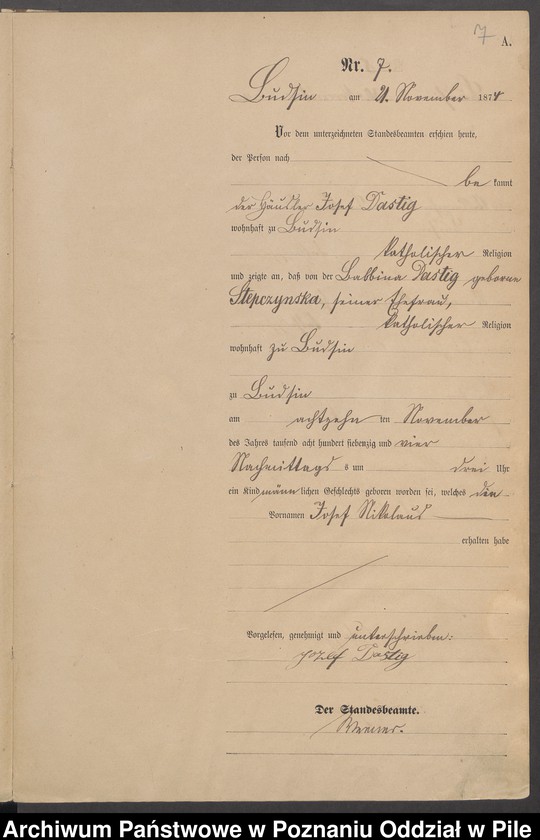 7
A.
Nr. 7.
Budsin am 21. November 1874
Vor dem unterzeichneten Standesbeamten erschien heute,
der Person nach
be kannt
der Häusler Josef Dastig
wohnhaft zu Budsin
katholischer Religion
und zeigte an, daß von der Balbina Dastig geborne
Stepczynska, seiner Ehefrau,
katholischer Religion
wohnhaft zu Budsin
zu Budsin
am achtzehn ten November
des Jahres tausend acht hundert siebenzig und vier
Nachmittags s um drei Uhr
ein Kind männlichen Geschlechts geboren worden sei, welches den
Vornamen Josef Nikolaus
erhalten habe
Vorgelesen, genehmigt und unterschrieben:
Jozef Dastig
Der Standesbeamte.
Werner.
Archiwum Państwowe w Poznaniu Oddział w Pile